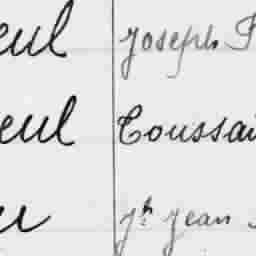 eul Joseph
eul Toussai
Jh Jean